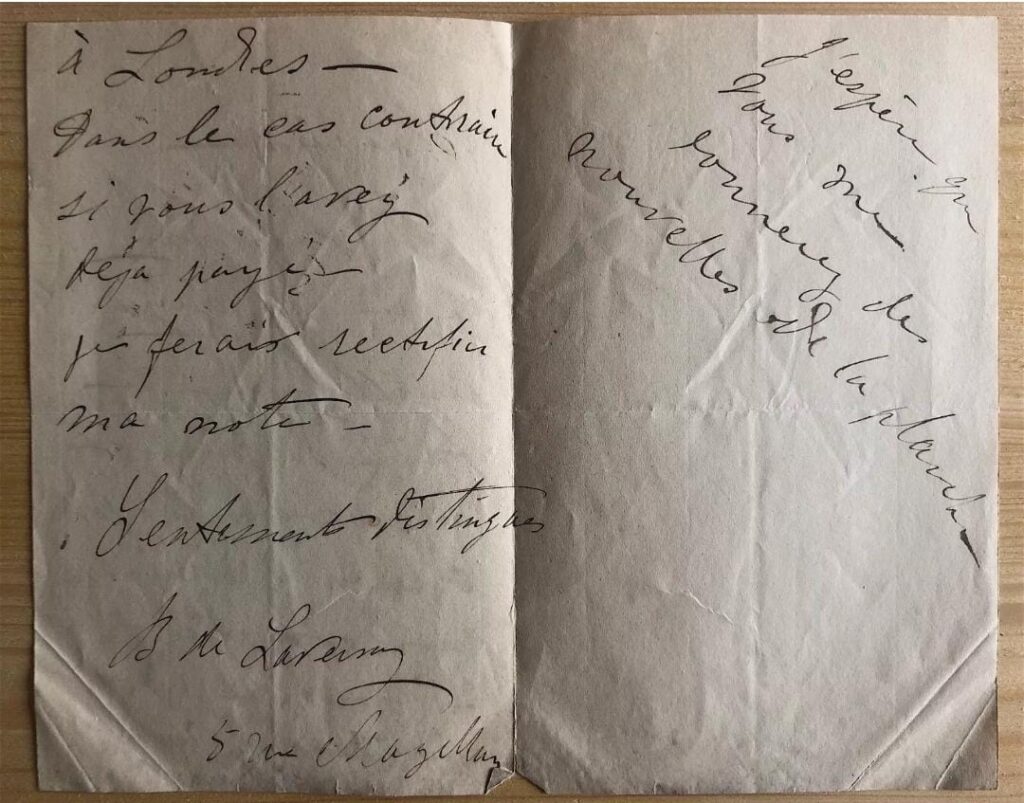 à Londres —
Dans le cas contraire
si vous l'avez
déja payé
je ferais rectifier
ma note —
Sentiments distingués
B de
5 rue Magellan
J'espère que
vous me
donnerez des
nouvelles de la planche